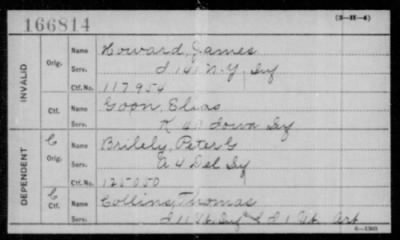 166814
(3-H-4)
INVALID
Orig.
Name Howard, James
Serv. I 141 N.Y. Inf
Ctf. No. 117954
Ctf.
Name Goon, Elias
Serv. K 40 Iowa Inf
DEPENDENT
C
Orig.
Name Brilely, Peter G
Serv. A 4 Del Inf
Ctf. No. 125050
C
Ctf.
Name Collins, Thomas
Serv. I 11 Vt. Inf & I 1 Vt. Art